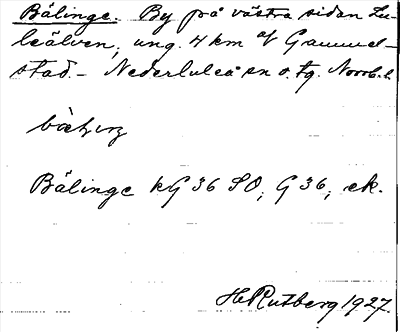 Bälinge. By på västra sidan Lu-
leälven, ung. 4 km af Gammel-
stad – Nederluleå sn o. tg. Norrb. l.
Bälinge kG 36 SO; G 36; ek.
H Rutberg 1927.